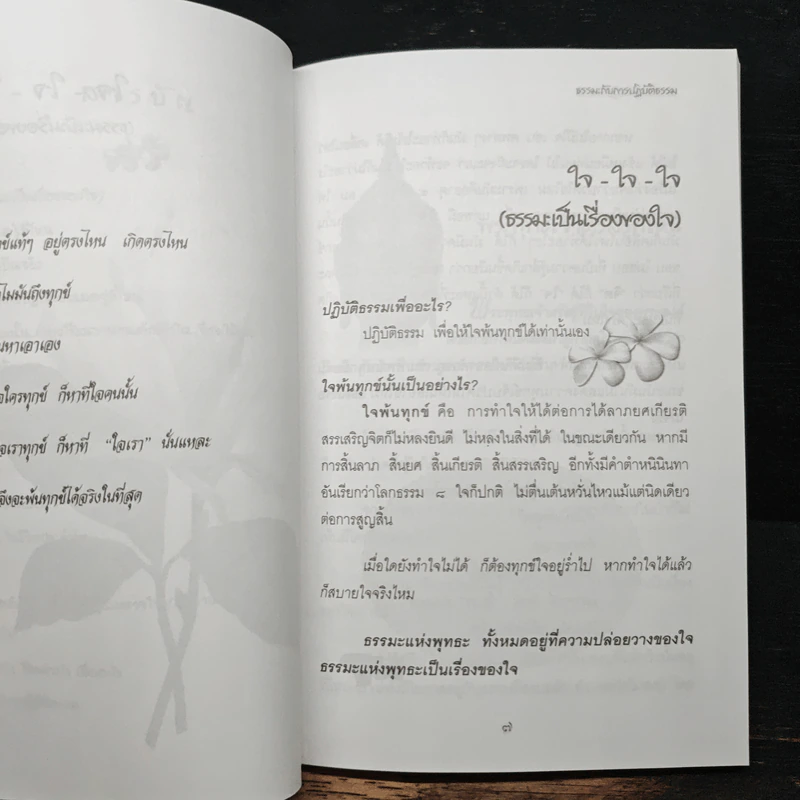 ข์แท้ๆ อยู่ตรงไหน เกิดตรงไหน
ไม่มันถึงทุกข์
หาเอาเอง
ใครทุกข์ ก็หาที่ใจคนนั้น
เราทุกข์ ก็หาที่ “ใจเรา” นั่นแหละ
จึงจะพ้นทุกข์ได้จริงในที่สุด
ธรรมะกับการปฏิบัติธรรม
ใจ - ใจ - ใจ
(ธรรมะเป็นเรื่องของใจ)
ปฏิบัติธรรมเพื่ออะไร?
ปฏิบัติธรรม เพื่อให้ใจพ้นทุกข์ได้เท่านั้นเอง
ใจพ้นทุกข์นั้นเป็นอย่างไร?
ใจพ้นทุกข์ คือ การทำใจให้ได้ต่อการได้ลาภยศเกียรติ
สรรเสริญจิตก็ไม่หลงยินดี ไม่หลงในสิ่งที่ได้ ในขณะเดียวกัน หากมี
การสิ้นลาภ สิ้นยศ สิ้นเกียรติ สิ้นสรรเสริญ อีกทั้งมีคำตำหนินินทา
อันเรียกว่าโลกธรรม ๘ ใจก็ปกติ ไม่ตื่นเต้นหวั่นไหวแม้แต่นิดเดียว
ต่อการสูญสิ้น
เมื่อใดยังทำใจไม่ได้ ก็ต้องทุกข์ใจอยู่ร่ำไป หากทำใจได้แล้ว
ก็สบายใจจริงไหม
ธรรมะแห่งพุทธะ ทั้งหมดอยู่ที่ความปล่อยวางของใจ
ธรรมะแห่งพุทธะเป็นเรื่องของใจ
๗